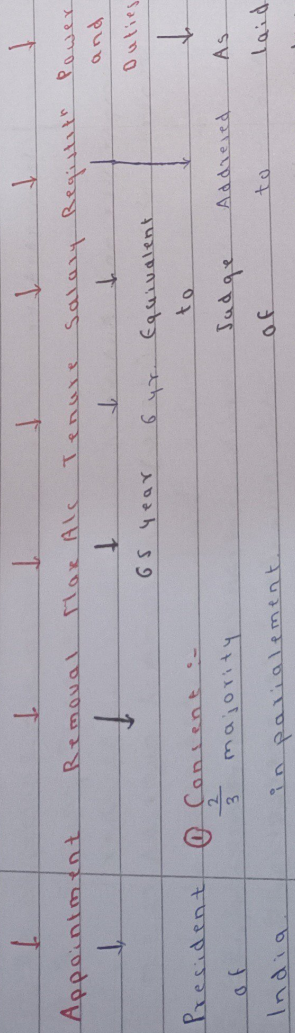 Appointment Removal Max Age Tenure Salary Power
and
Duties
65 year 6 yr. Equivalent
to
Judge
of
President
of
India
① Consent :-
2/3 majority
in parialement.
Addrered As
to laid